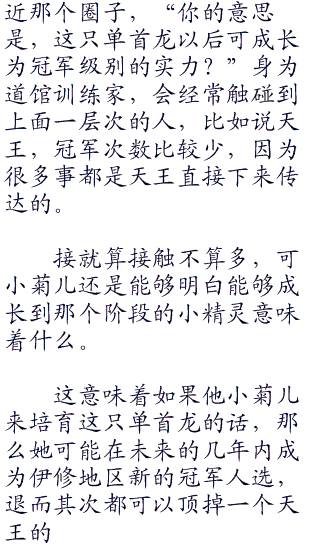 近那个圈子，“你的意思
是，这只单首龙以后可成长
为冠军级别的实力？”身为
道馆训练家，会经常触碰到
上面一层次的人，比如说天
王，冠军次数比较少，因为
很多事都是天王直接下来传
达的。
接就算接触不算多，可
小菊儿还是能够明白能够成
长到那个阶段的小精灵意味
着什么。
这意味着如果他小菊儿
来培育这只单首龙的话，那
么她可能在未来的几年内成
为伊修地区新的冠军人选，
退而其次都可以顶掉一个天
王的